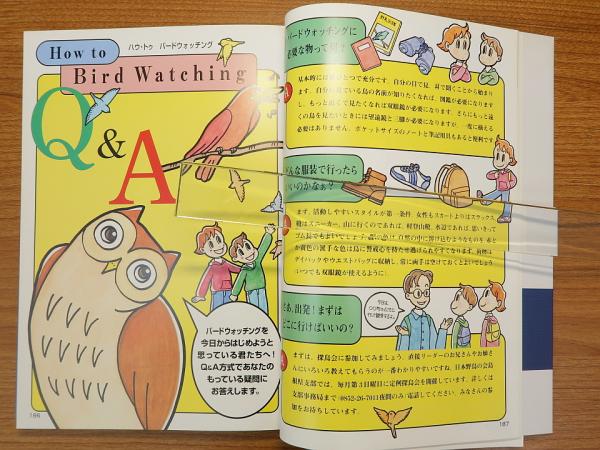 How to
ハウ・トゥ バードウォッチング
Bird Watching
Q&A
バードウォッチングを
今日からはじめようと
思っている君たちへ!
Q&A方式であなたの
もっている疑問に
お答えします。
166
バードウォッチングに
必要な物って何?
基本的には
ひとつで充分です。自分の目で見、耳で聞くことから始まり
ます。自分の見ている鳥の名前が知りたくなれば、図鑑が必要になります
し、もっと近くで見たくなれば双眼鏡が必要になります。さらにもっと遠
くの鳥を見たいときには望遠鏡と三脚が必要になりますが、一度に揃える
必要はありません。ポケットサイズのノートと筆記用具もあると便利です
どんな服装で行ったら
いいのかなぁ?
まず、活動しやすいスタイルが第一条件。女性もスカートよりはスラックス
靴はスニーカー。山に行くのであれば、軽登山靴、水辺であれば、思いきって
ゴム長でもよいでしょう。
自然の中に溶け込むようなものを。赤と
か黄色の派手な色は鳥に警戒心を持たせ逃げられやすくなります。荷物は
デイパックやウエストバッグに収納し、常に両手は空けておくとよいでしょう
いつでも双眼鏡が使えるように
さあ、出発!まずは
どこに行けばいいの?
まずは、探鳥会に参加してみましょう。直接リーダーのお兄さんやお姉さ
んにいろいろ教えてもらうのが一番わかりやすいですね。日本野鳥の会島
根県支部では、毎月第3日曜日に定例探鳥会を開催しています。詳しくは
支部事務局まで(0852-26-7011夜間のみ)電話してください。みなさんの参
加をお待ちしています。
167